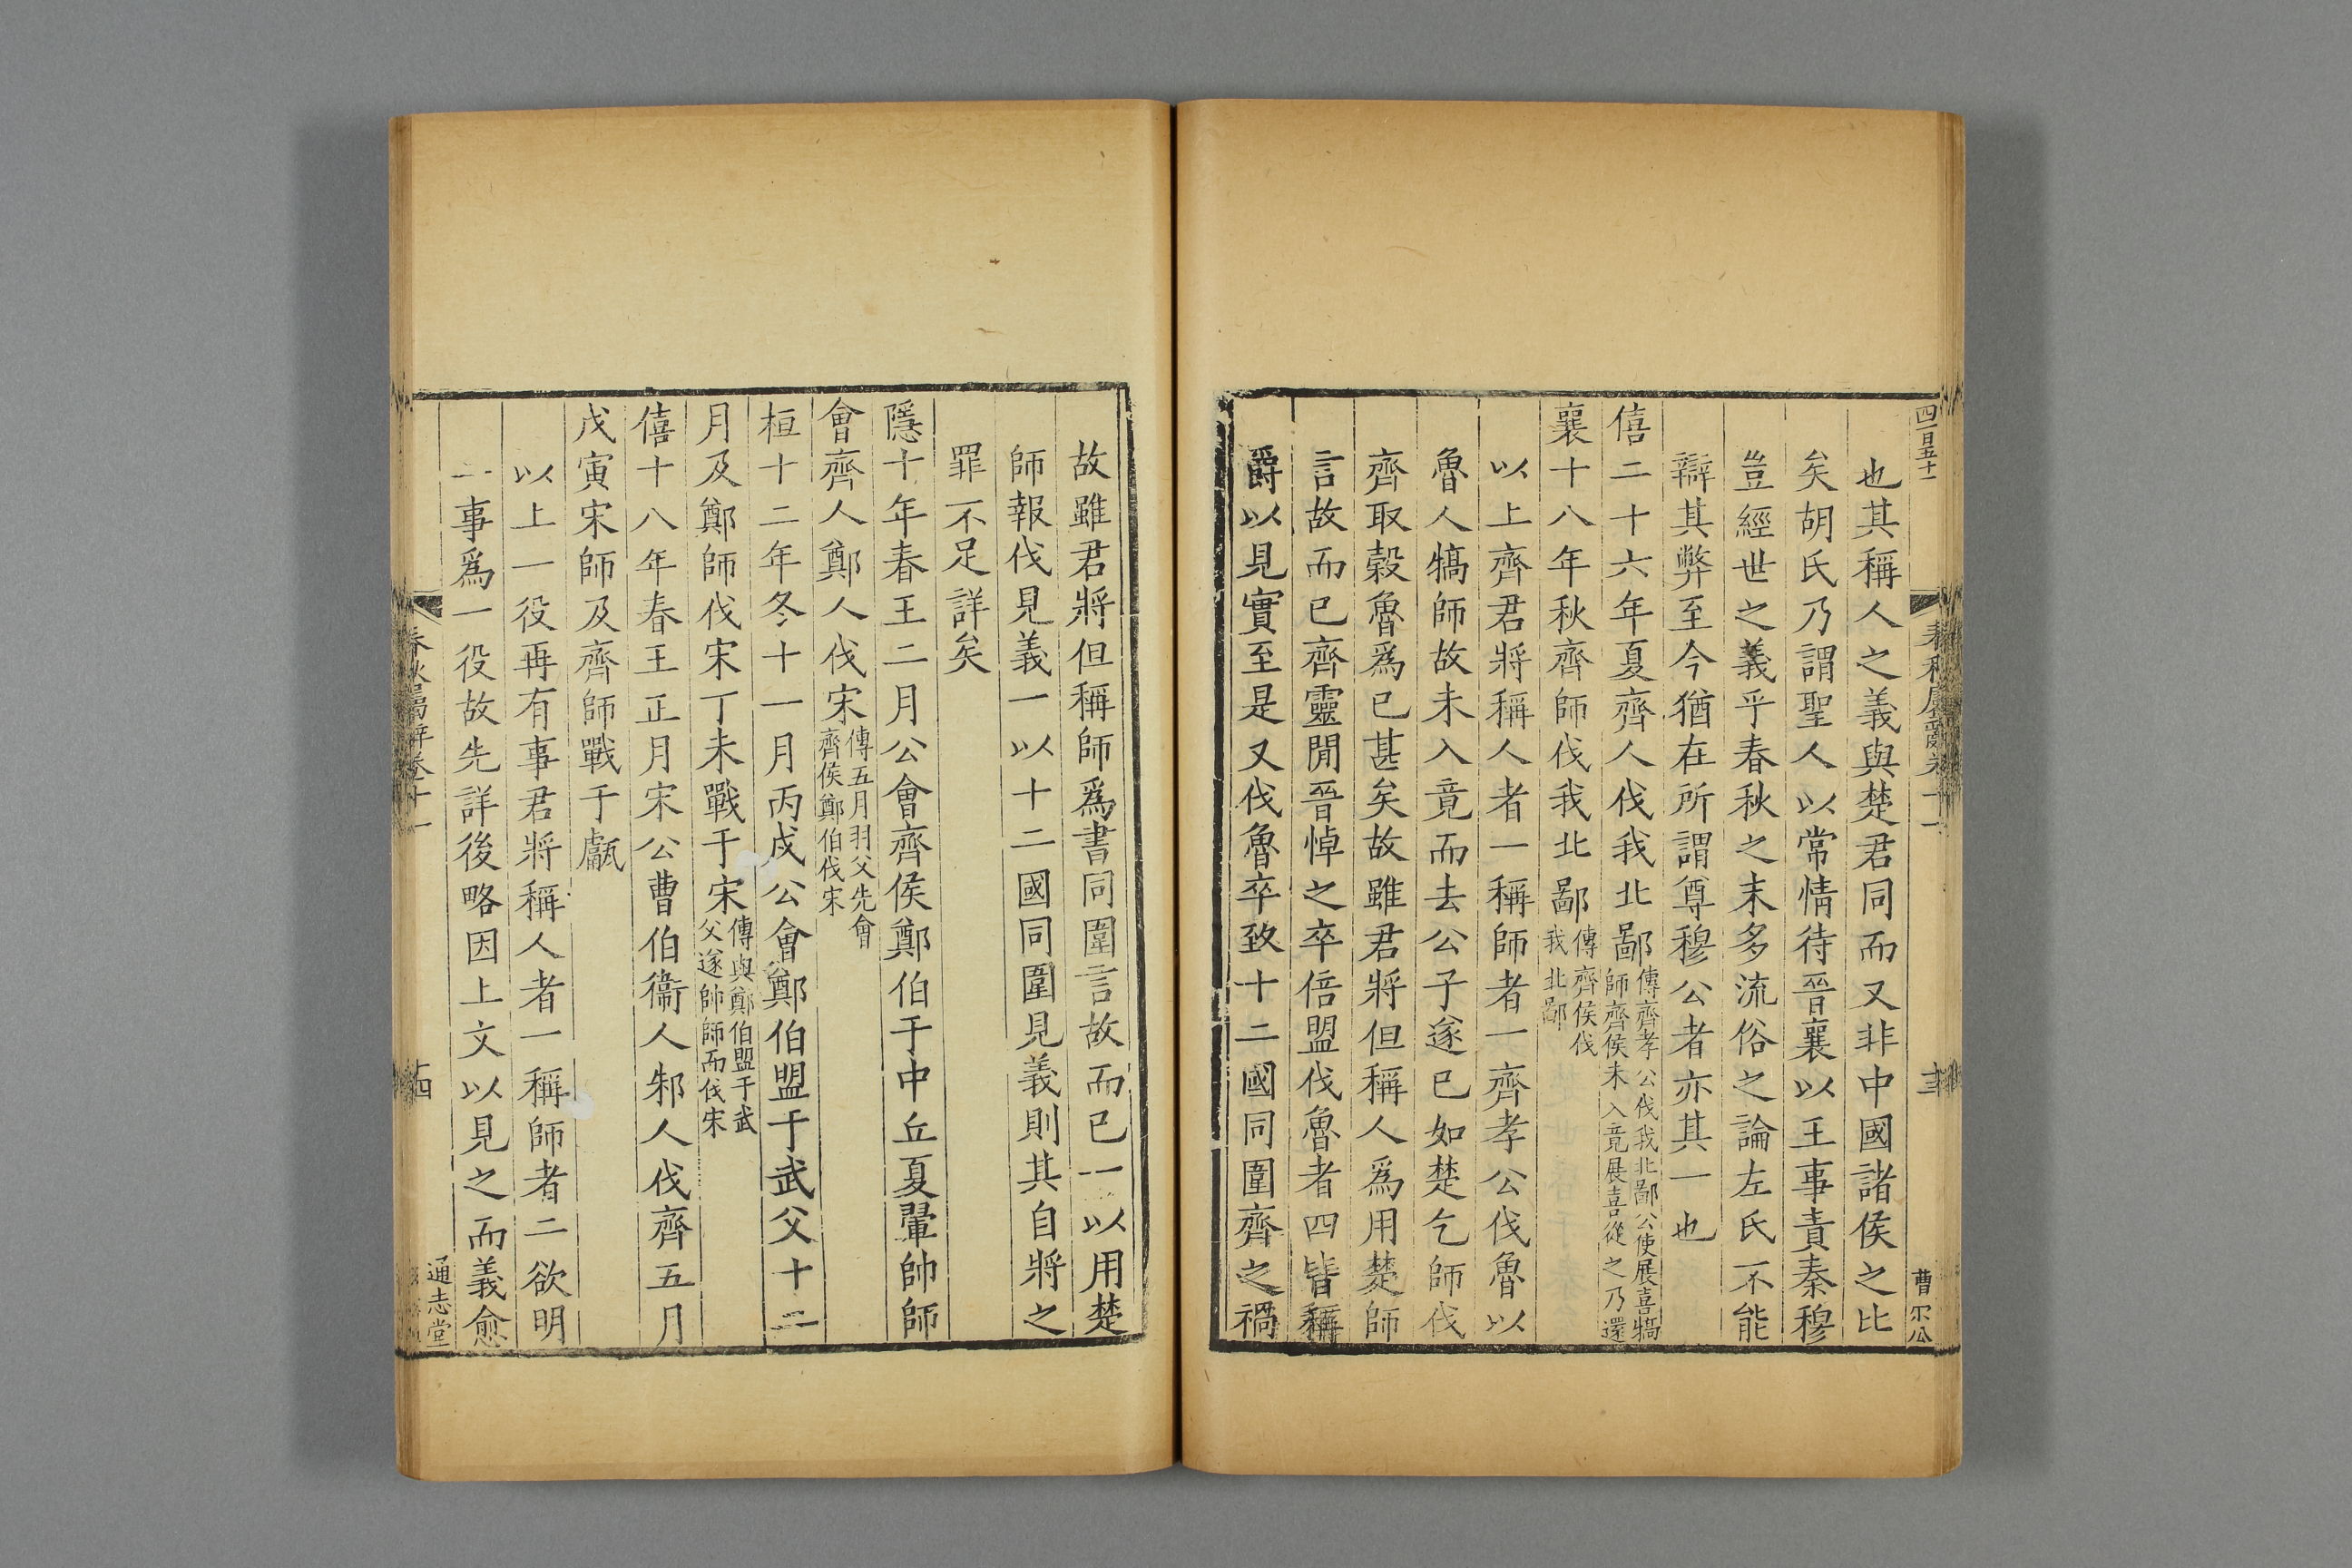 四百五十一
春秋屬辭卷十一
十三
曹尔公
也其稱人之義與楚君同而又非中國諸侯之比
矣胡氏乃謂聖人以常情待晉襄以王事責秦穆
豈經世之義乎春秋之末多流俗之論左氏不能
辯其弊至今猶在所謂尊穆公者亦其一也
僖二十六年夏齊人伐我北鄙傳齊孝公伐我北鄙公使展喜犒
師齊侯未入竟展喜從之乃還
襄十八年秋齊師伐我北鄙傳齊侯伐
我北鄙
以上齊君將稱人者一稱師者一齊孝公伐魯以
魯人犒師故未入竟而去公子遂已如楚乞師伐
齊取穀魯爲已甚矣故雖君將但稱人爲用楚師
言故而已齊靈閒晉悼之卒倍盟伐魯者四皆稱
爵以見實至是又伐魯卒致十二國同圍齊之禍
故雖君將但稱師爲書同圍言故而已一以用楚
師報伐見義一以十二國同圍見義則其自將之
罪不足詳矣
隱十年春王二月公會齊侯鄭伯于中丘夏翬帥師
會齊人鄭人伐宋傳五月羽父先會
齊侯鄭伯伐宋
桓十二年冬十一月丙戌公會鄭伯盟于武父十二
月及鄭師伐宋丁未戰于宋傳與鄭伯盟于武
父遂帥師而伐宋
僖十八年春王正月宋公曹伯衞人邾人伐齊五月
戊寅宋師及齊師戰于甗
以上一役再有事君將稱人者一稱師者二欲明
一事爲一役故先詳後略因上文以見之而義愈
春秋屬辭卷十一
十四
通志堂